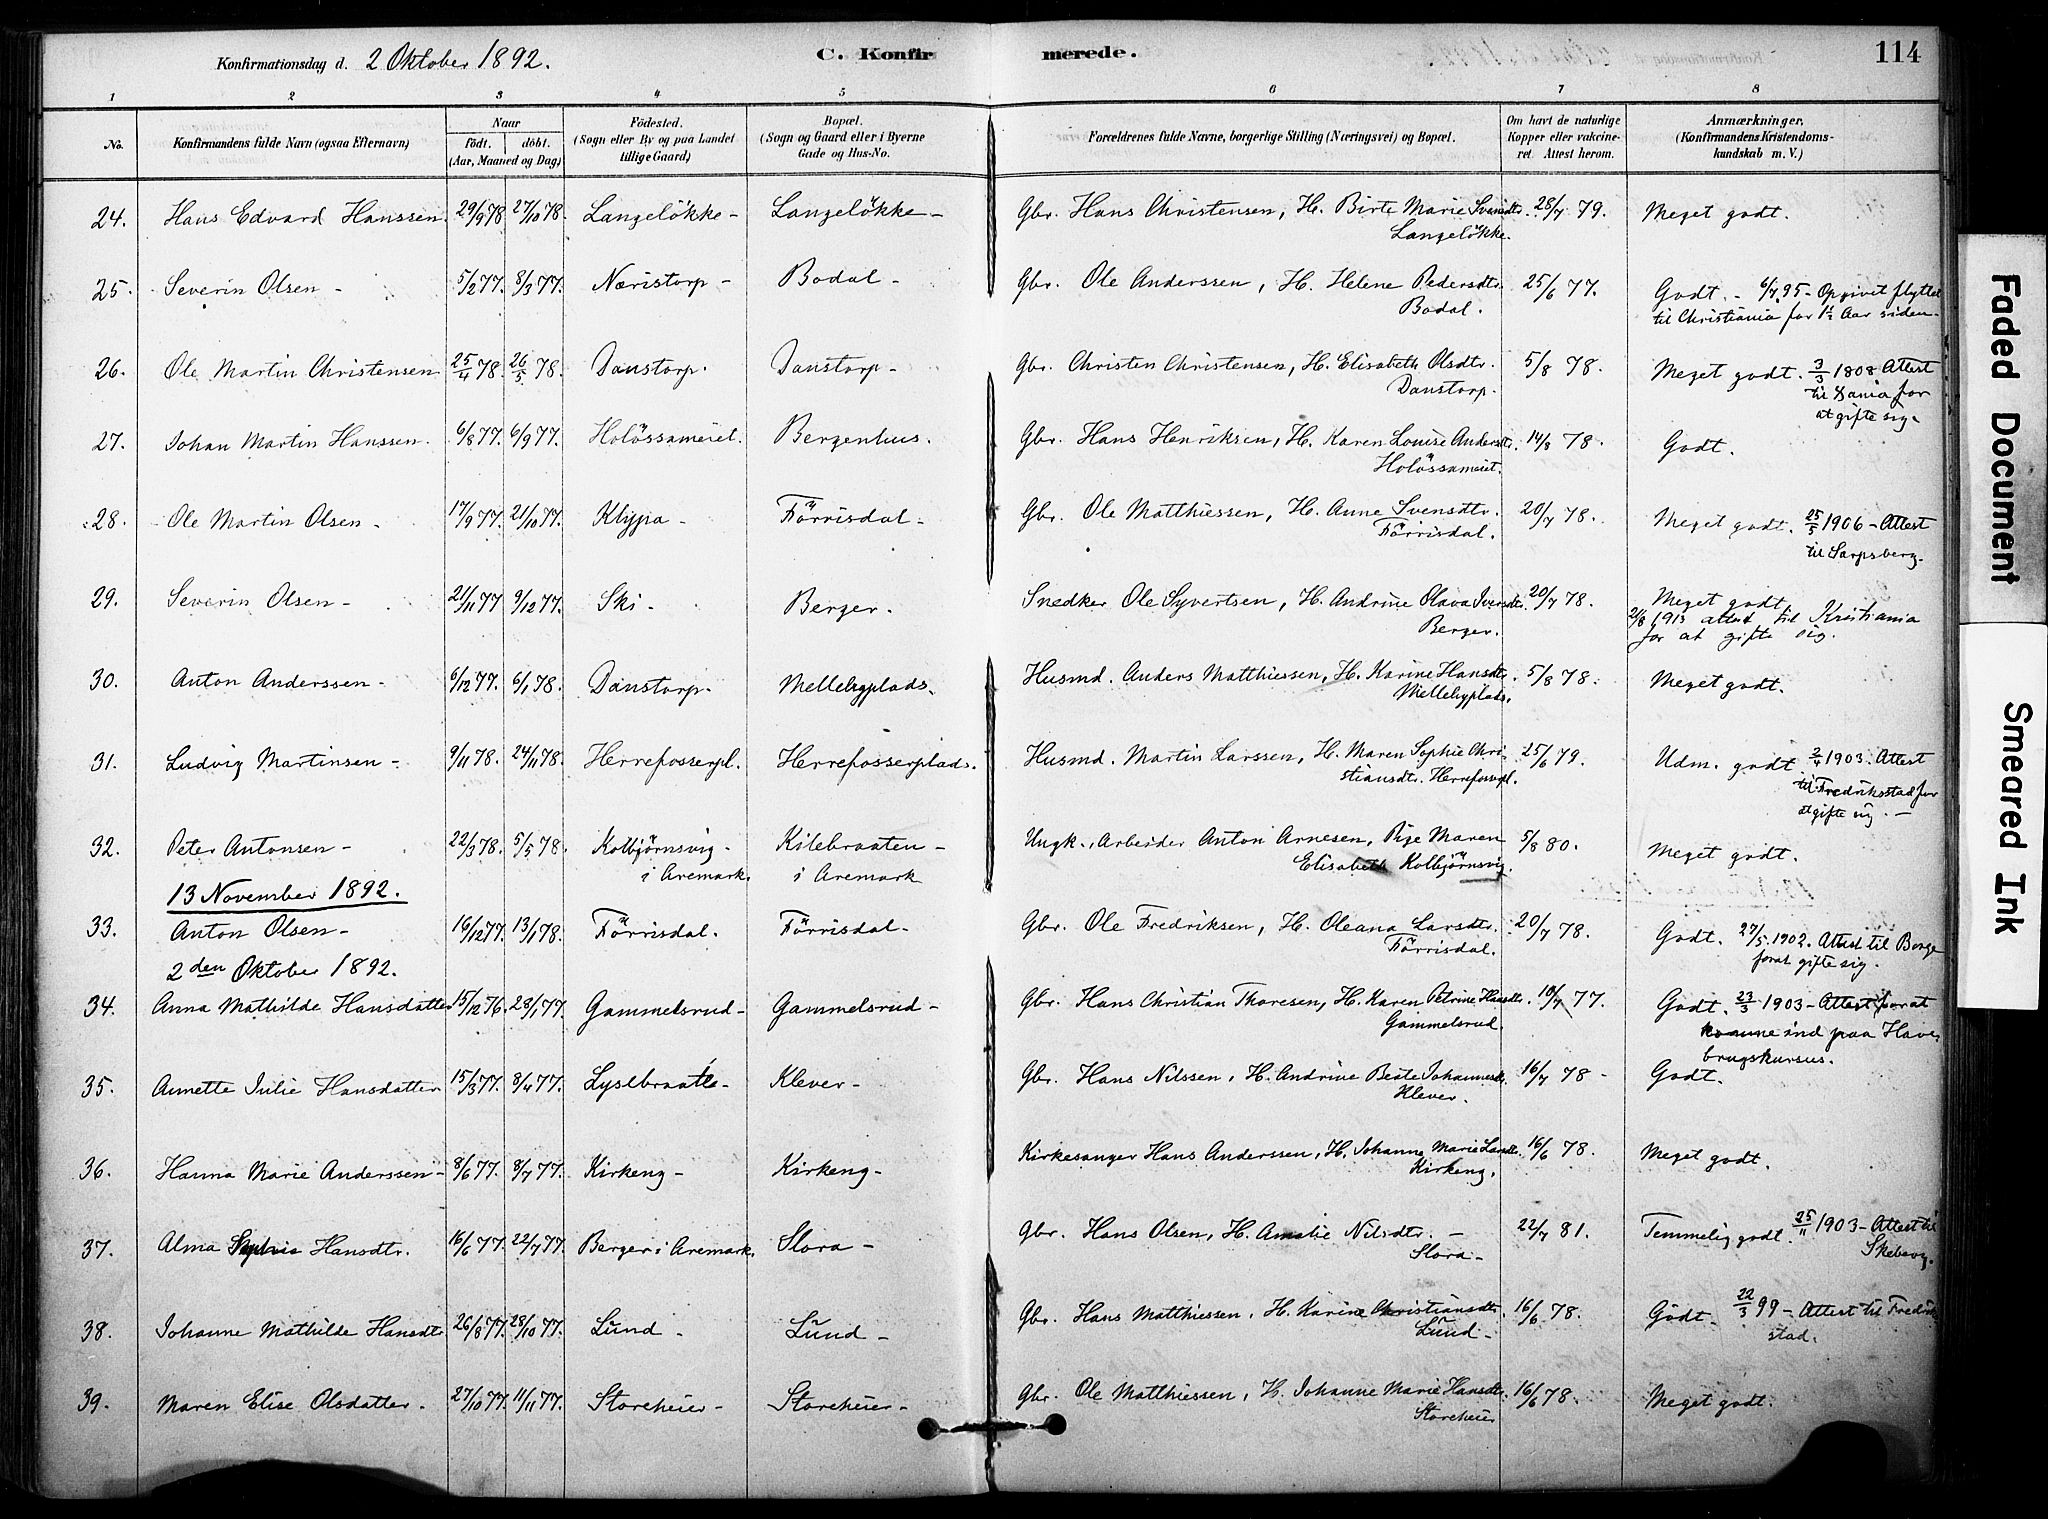 Konfirmationsdag d. 2 Oktober 1892. C. Konfirmerede. 114
1 2 3 4 5 6 7 8
No. Konfirmandens fulde Navn (ogsaa Efternavn) Naar Födt. döbt. (Aar, Maaned og Dag) Födested. (Sogn eller By og paa Landet tillige Gaard) Bopæl. (Sogn og Gaard eller i Byerne Gade og Hus-No. Forældrenes fulde Navne, borgerlige Stilling (Næringsvei) og Bopæl. Om havt de naturlige Kopper eller vakcineret. Attest herom. Anmærkninger, (Konfirmandens Kristendomskundskab m. V.)
24. Hans Edvard Hanssen. 29/9 78 27/10 78. Langelökke - Langelökke - Gbr. Hans Christensen, H. Birte Marie Svensdtr. 28/7 79. Meget godt.
Langelökke.
25. Severin Olsen - 5/2 77. 8/3 77. Næristorp - Bodal - Gbr. Ole Anderssen, H. Helene Pedersdtr. 25/6 77. Godt. - 6/7 95 - Opgivet flyttet
Bodal. til Christiania for 1½ Aar siden -
26. Ole Martin Christensen 25/4 78. 26/5 78. Danstorp. Danstorp - Gbr. Christen Christensen, H. Elisabeth Olsdtr. 5/8 78. Meget godt. 3/3 1808 Attest
Danstorp. til Xania for
at gifte sig.
27. Johan Martin Hanssen. 6/8 77. 6/9 77. Holössameiet. Bergenhus. Gbr. Hans Henriksen, H. Karen Louise Andersdtr. 14/8 78. Godt.
Holössameiet.
28. Ole Martin Olsen - 17/9 77. 21/10 77. Klypa - Förrisdal - Gbr. Ole Matthiessen, H. Anne Svensdtr. 20/7 78. Meget godt. 25/5 1906 - Attest
Förrisdal. til Sarpsberg.
29. Severin Olsen - 21/11 77 9/12 77. Ski - Berger. Snedker Ole Syvertsen, H. Andrine Olava Iversdtr. 20/7 78. Meget godt.
Berger. 2/8 1913 attest til Kristiania
for at gifte sig.
30. Anton Anderssen - 6/12 77. 6/1 78. Danstorp. Mellebyplads. Husmd. Anders Matthiessen, H. Karine Hansdtr. 5/8 78. Meget godt.
Mellebyplads.
31. Ludvig Martinsen - 9/11 78. 24/11 78. Herrefosserpl. Herrefosserplads. Husmd. Martin Larssen, H. Maren Sophie Chri- 25/6 79. Udm. godt 2/4 1903. Attest
stiansdtr. Herrefosspl. til Fredrikstad for
at gifte sig. -
32. Peter Antonsen - 22/3 78. 5/5 78. Kolbjörnsvig - Kilebraaten - Ungk., Arbeider Anton Arnesen, Pige Maren 5/8 80. Meget godt.
i Aremark. i Aremark Elisabeth Kolbjörnsvig.
13 November 1892.
33. Anton Olsen - 16/12 77. 13/1 78. Förrisdal. Förrisdal - Gbr. Ole Fredriksen, H. Oleana Larsdtr. 20/7 78. Godt. 27/5 1902. Attest til Borge
Förrisdal. forat gifte sig.
2den Oktober 1892.
34. Anna Mathilde Hansdatter 15/12 76. 28/1 77. Gammelsrud - Gammelsrud - Gbr. Hans Christian Thoresen, H. Karen Petrine Hansdtr. 10/7 77. Godt. 23/3 1903 - Attest for at
Gammelsrud. komme ind paa Have-
brugskursus.
35. Annette Julie Hansdatter 15/3 77. 8/4 77. Lyslebraatle - Klever - Gbr. Hans Nilssen, H. Andrine Beate Johannesdr. 16/7 78 - Godt.
Klever.
36. Hanna Marie Anderssen - 8/6 77. 8/7 77. Kirkeng - Kirkeng - Kirkesanger Hans Anderssen, H. Johanne Marie Larsdtr. 16/6 78. Meget godt.
Kirkeng.
37. Alma Sophie Hansdtr. 16/6 77 22/7 77. Berger i Aremark. Slora - Gbr. Hans Olsen, H. Amalie Nilsdtr. - 22/7 81. Temmelig godt. 25/11 1903 - Attest til
Slora - Skeberg.
38. Johanne Mathilde Hansdtr. 26/8 77. 28/10 77. Lund - Lund - Gbr. Hans Matthiessen, H. Karine Christiansdtr. 16/6 78. Godt. 22/3 99 - Attest til Fredrik
Lund - stad.
39. Maren Elise Olsdatter. 27/10 77. 11/11 77. Storeheier - Storeheier - Gbr. Ole Matthiessen, H. Johanne Marie Hansdtr. 16/6 78. Meget godt.
Storeheier
Faded Document
Smeared Ink